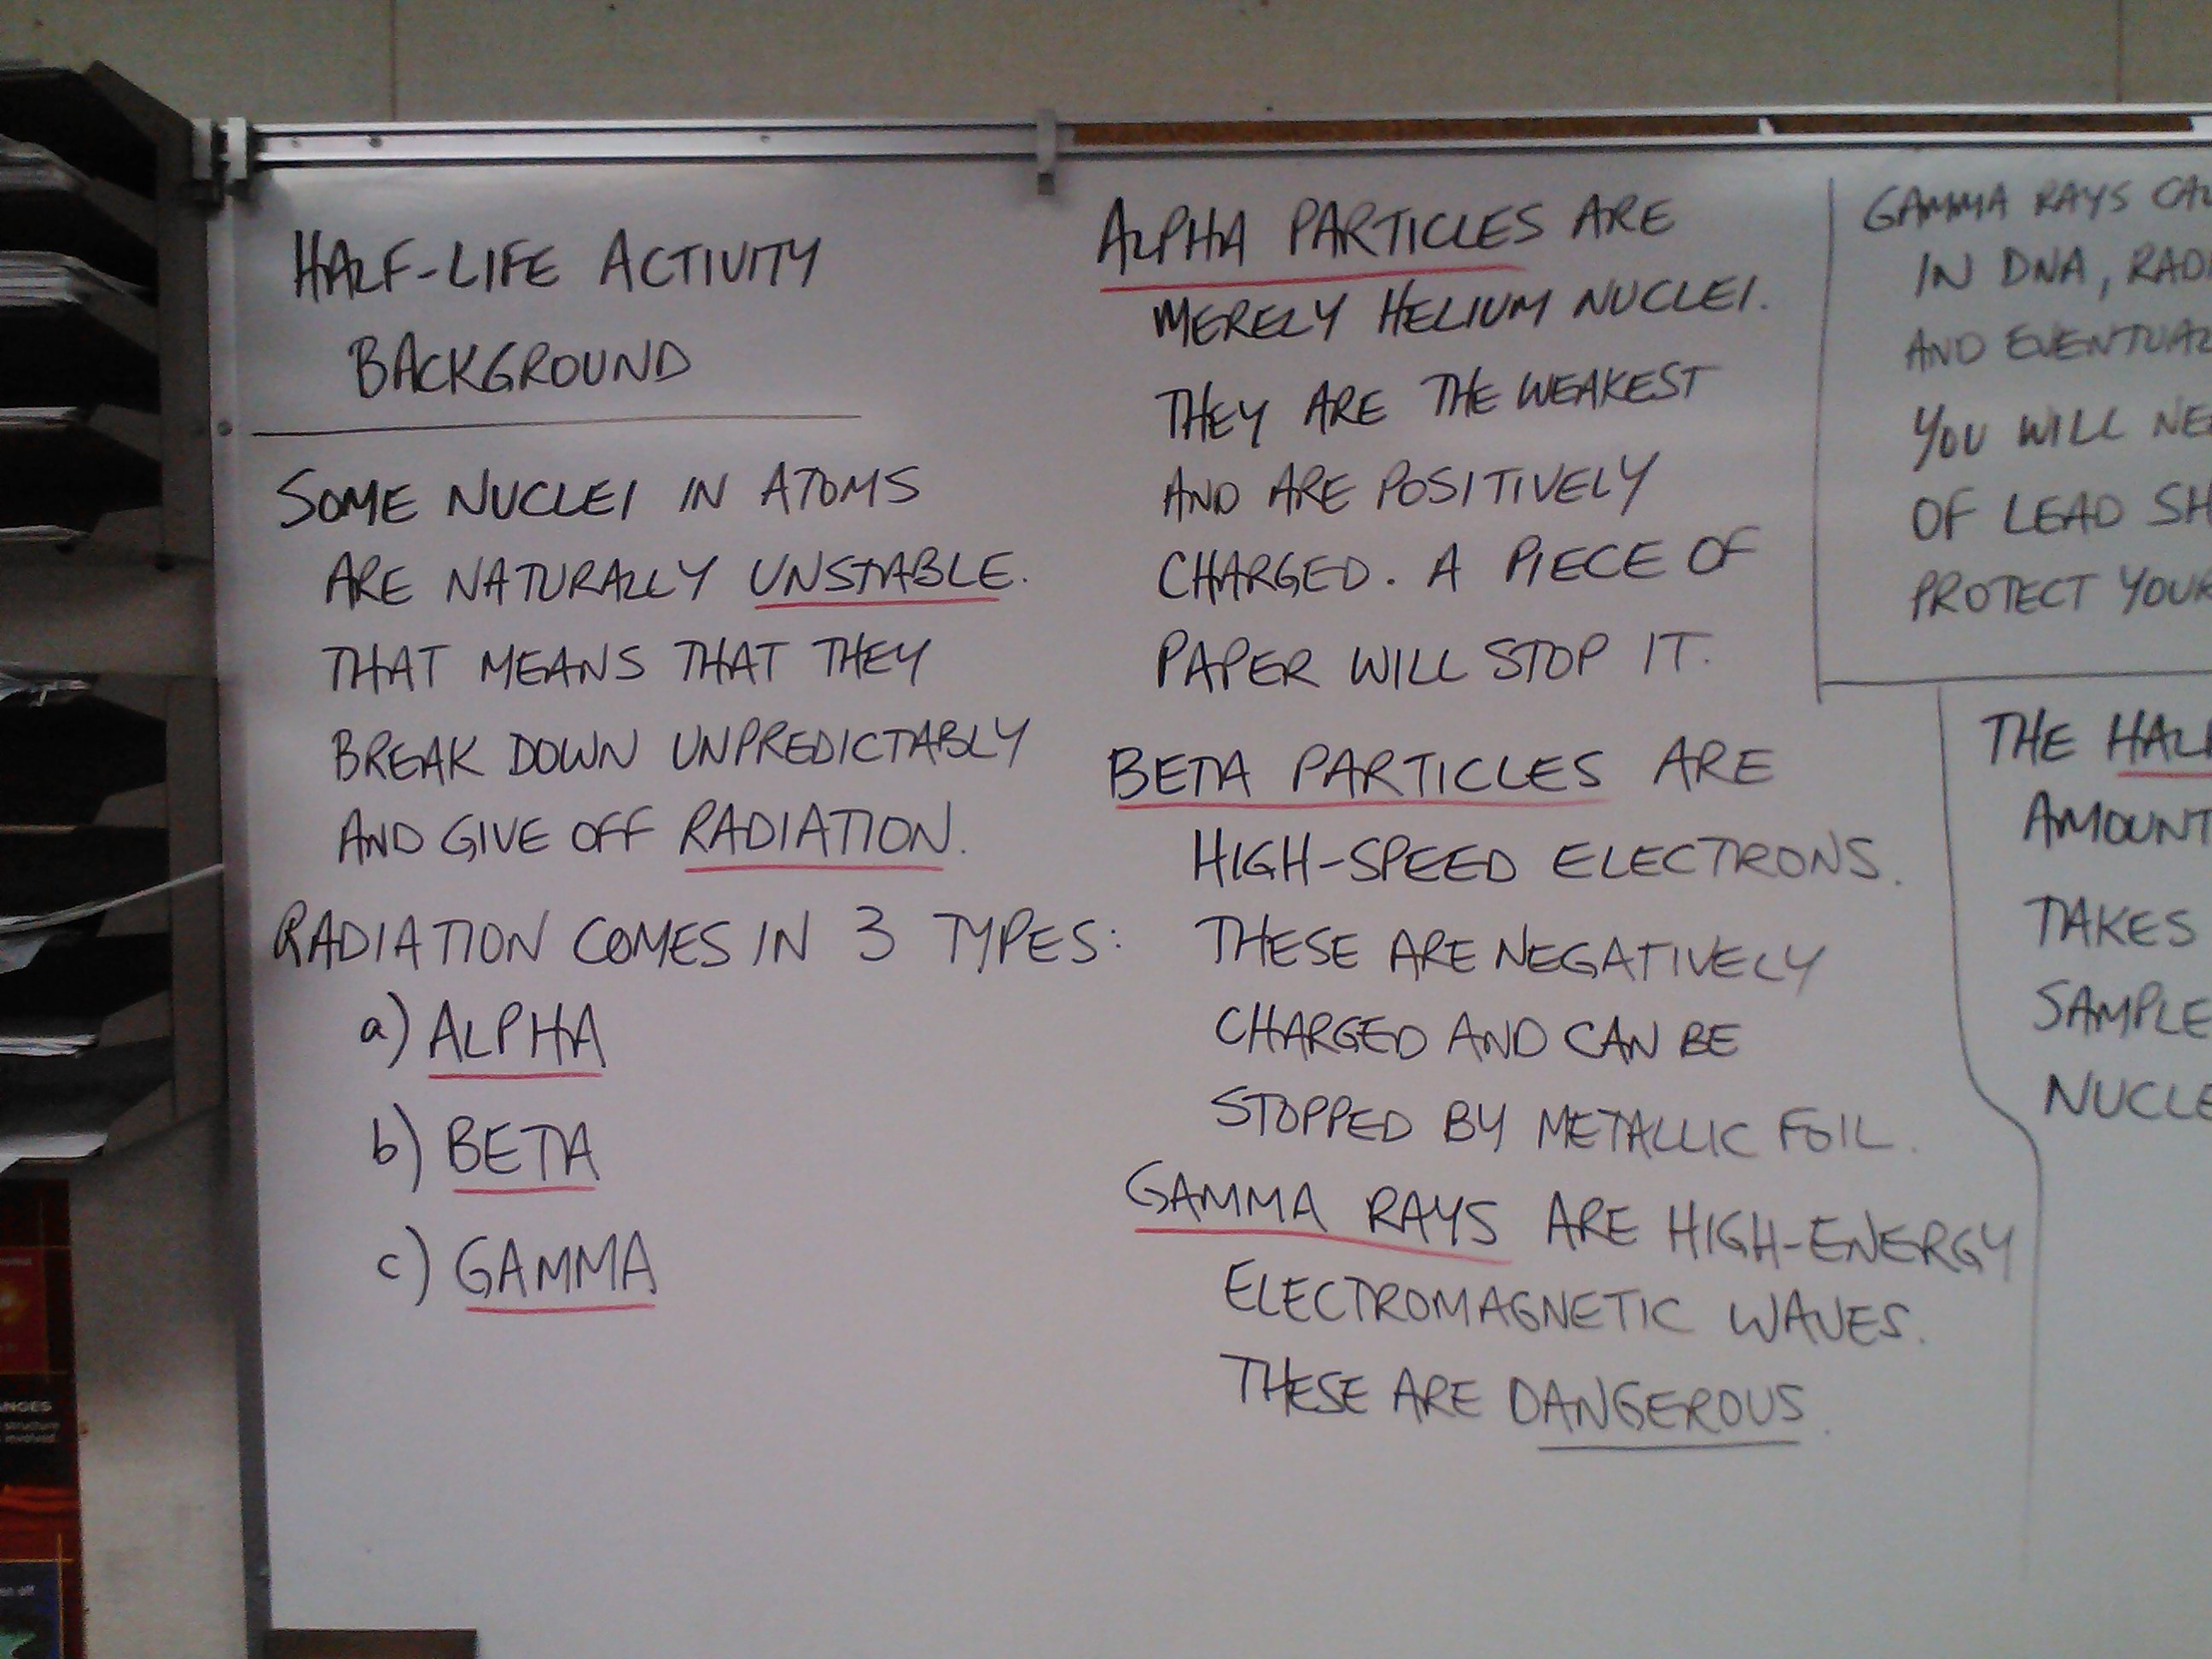 HALF-LIFE ACTIVITY
BACKGROUND
SOME NUCLEI IN ATOMS
ARE NATURALLY UNSTABLE.
THAT MEANS THAT THEY
BREAK DOWN UNPREDICTABLY
AND GIVE OFF RADIATION.
RADIATION COMES IN 3 TYPES:
a) ALPHA
b) BETA
c) GAMMA
ALPHA PARTICLES ARE
MERELY HELIUM NUCLEI.
THEY ARE THE WEAKEST
AND ARE POSITIVELY
CHARGED. A PIECE OF
PAPER WILL STOP IT.
BETA PARTICLES ARE
HIGH-SPEED ELECTRONS.
THESE ARE NEGATIVELY
CHARGED AND CAN BE
STOPPED BY METALLIC FOIL.
GAMMA RAYS ARE HIGH-ENERGY
ELECTROMAGNETIC WAVES.
THESE ARE DANGEROUS.
GAMMA RAYS
IN DNA,
AND
YOU WILL
OF LEAD
PROTECT
THE
AMOUNT
TAKES
SAMPLE
structure
involved.